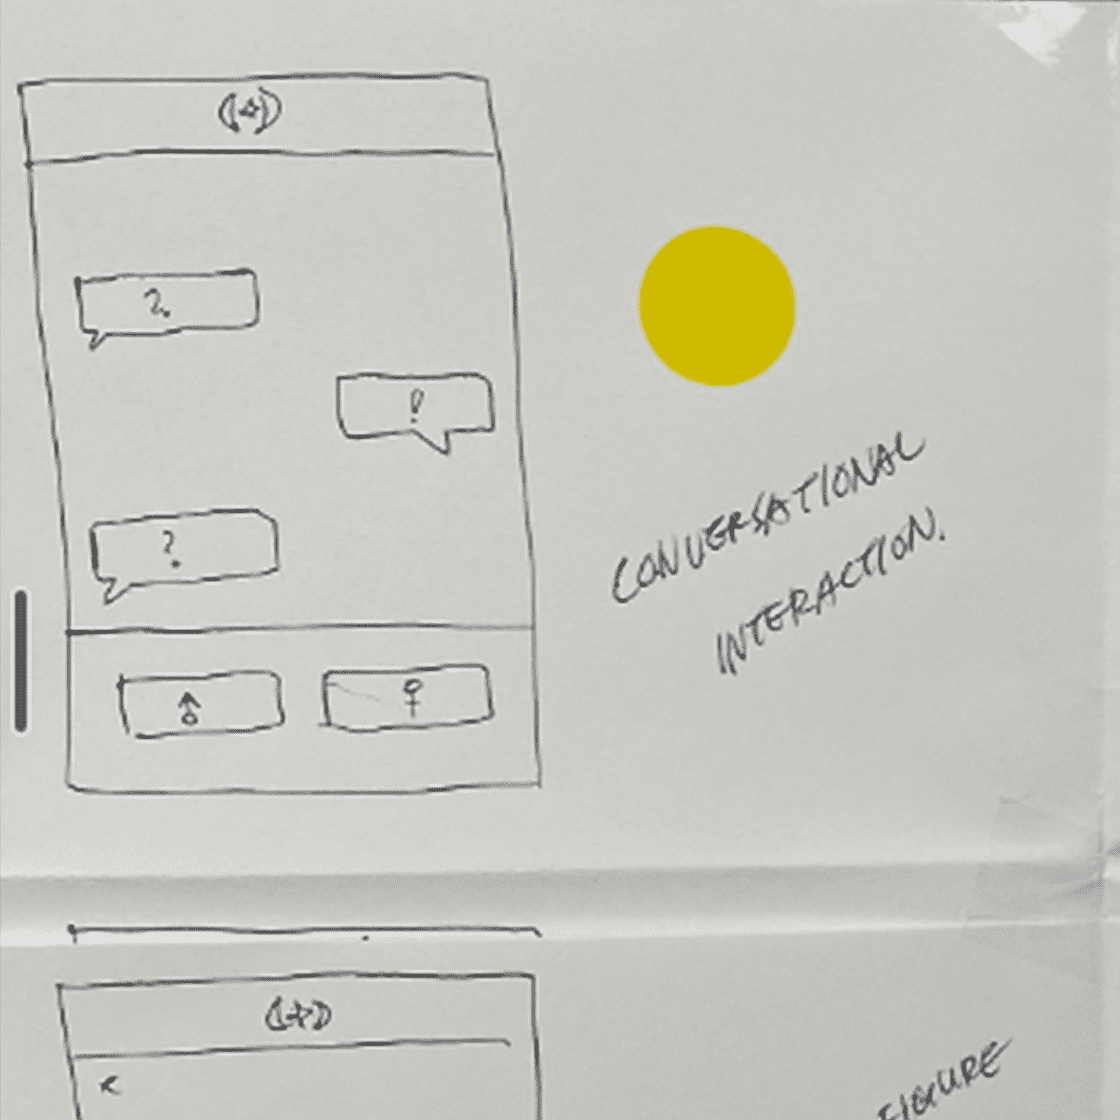 ?
!
?
CONVERSATIONAL
INTERACTION.